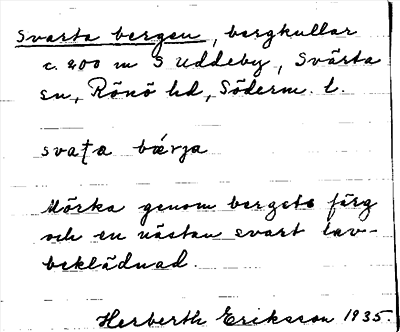 Svarta bergen, bergkullar
c. 200 m S Uddeby, Svärta
sn, Rönö hd, Söderm. l.
svaṭa bærja
Mörka genom bergets färg
och en nästan svart lav-
beklädnad.
Herberth Eriksson 1935.